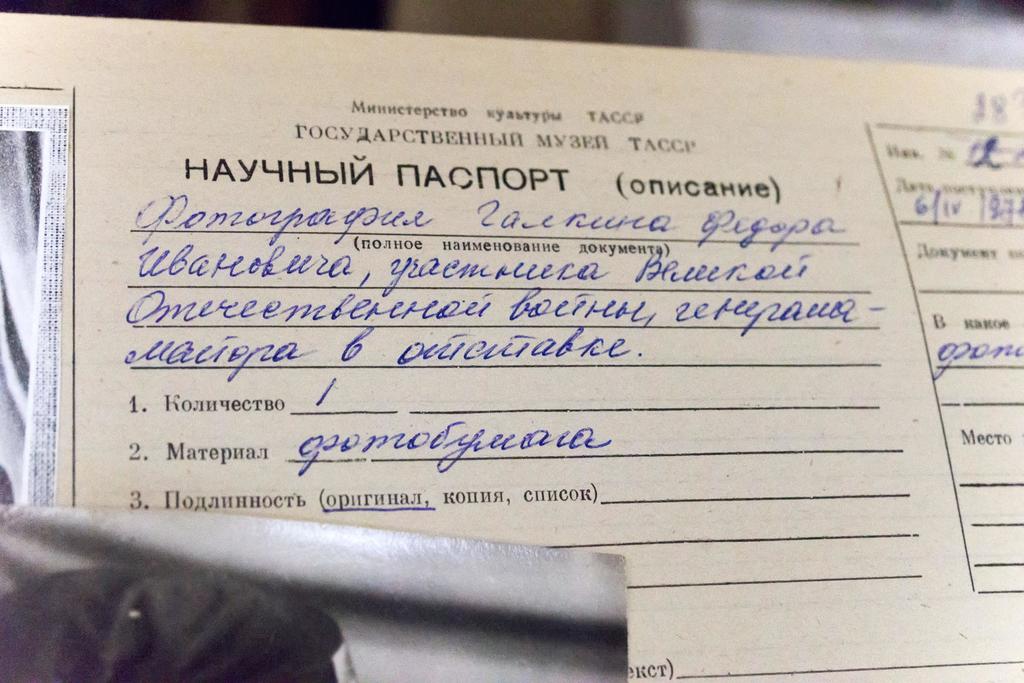 Министерство культуры ТАССР
ГОСУДАРСТВЕННЫЙ МУЗЕЙ ТАССР
НАУЧНЫЙ ПАСПОРТ (описание)
Фотография Галкина Федора
(полное наименование документа)
Ивановича, участника Великой
Отечественной войны, генерала-
майора в отставке.
1. Количество 1
2. Материал фотобумага
3. Подлинность (оригинал, копия, список)
екст)
Инв. №
6/IV 197
Документ
В какое
фото
Место